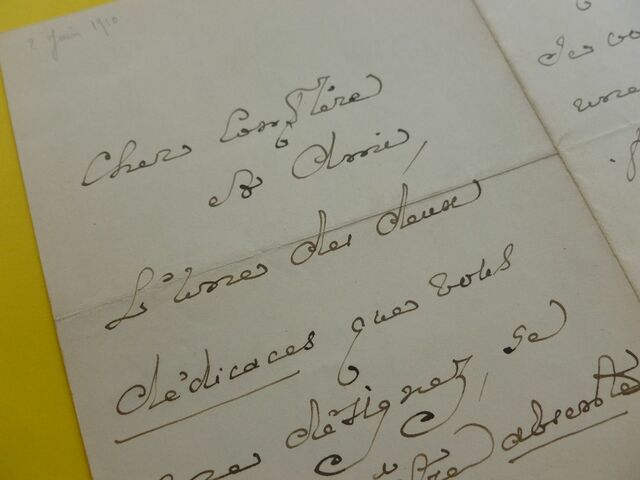 2 Juin 1910
Cher Confrère
et Amie,
L'une des deux
dédicaces que vous
me désignez, se
être absente
des
une